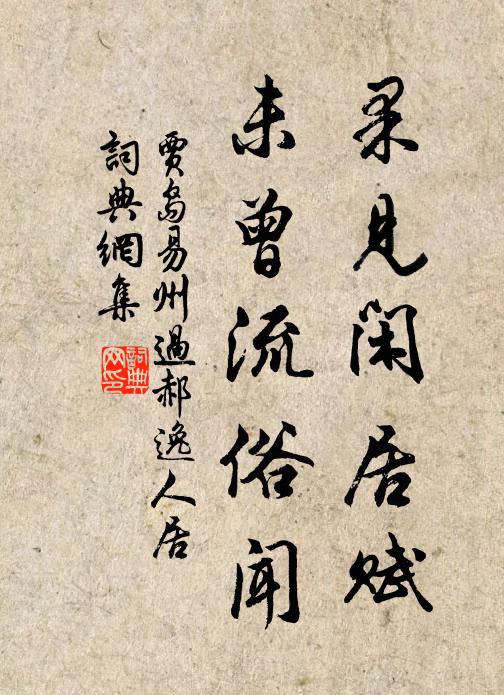 果見閑居賦
未曾流俗聞
賈島易州過郝逸人居
詞典網集
詞典网印